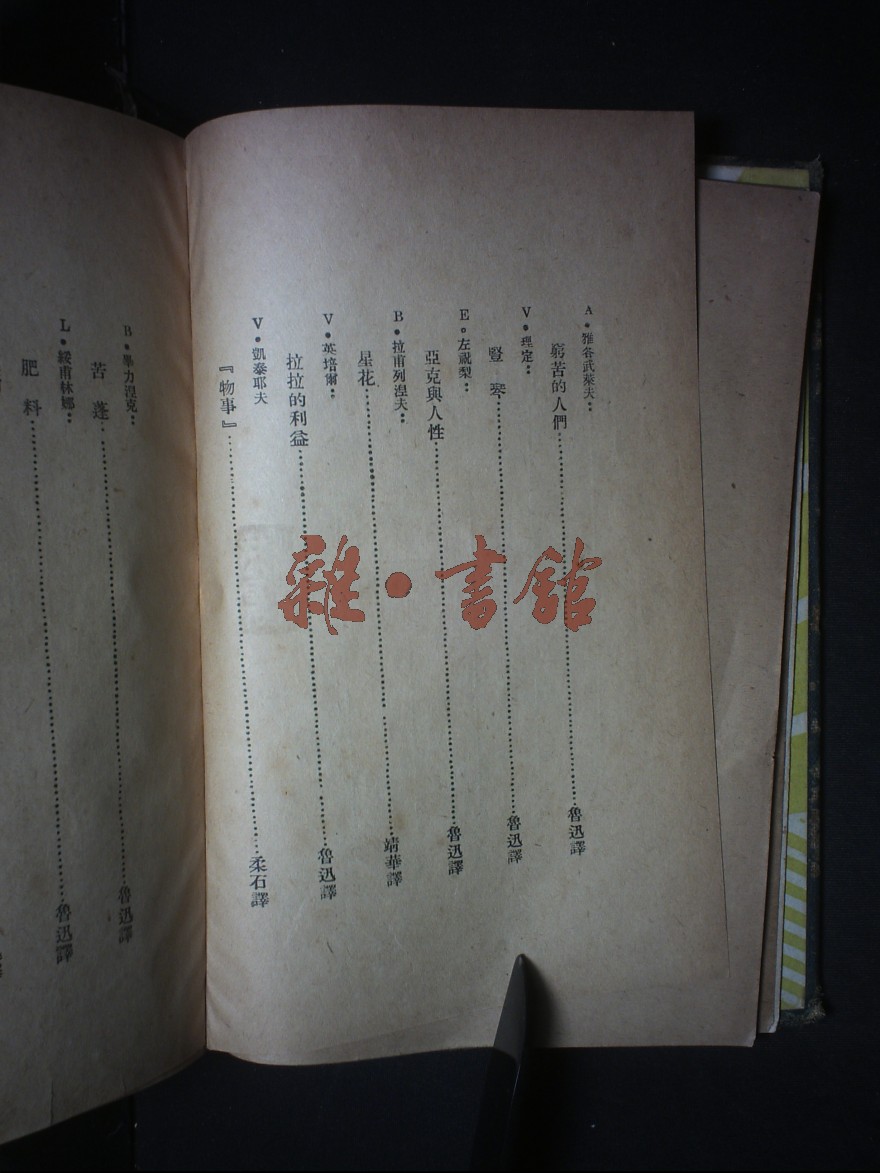 A・雅各武萊夫：
窮苦的人們…………魯迅譯
V・理定：
豎琴…………魯迅譯
E。左祝梨：
亞克與人性…………魯迅譯
B・拉甫列涅夫：
星花…………靖華譯
V・英培爾：
拉拉的利益…………魯迅譯
V・凱泰耶夫
『物事』…………柔石譯
B・畢力涅克：
苦蓬…………魯迅譯
L・綏甫林娜：
肥料…………魯迅譯
雜・書館